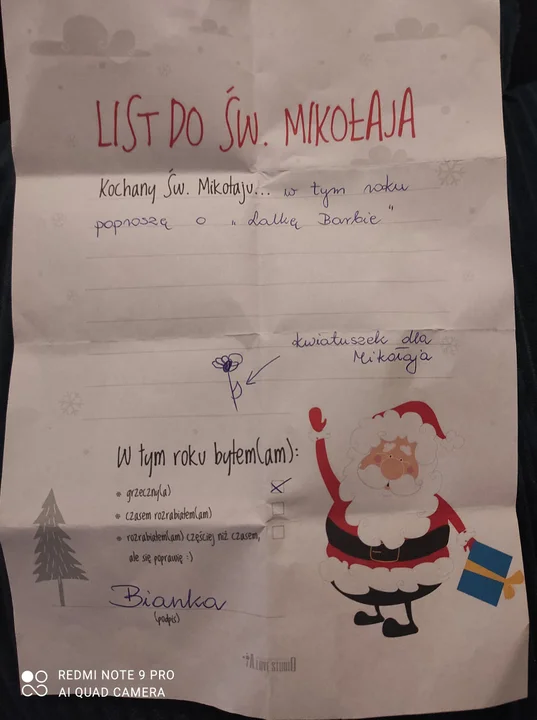 LIST DO ŚW. MIKOŁAJA
Kochany Św. Mikołaju... w tym roku
poproszę o „lalkę Barbie"
kwiatuszek dla
Mikołaja
W tym roku byłem(am):
grzeczny(a)
czasem rozrabiałem(am)
rozrabiałem(am) częściej niż czasem,
ale się poprawię :)
Bianka
(podpis)
REDMI NOTE 9 PRO
AI QUAD CAMERA